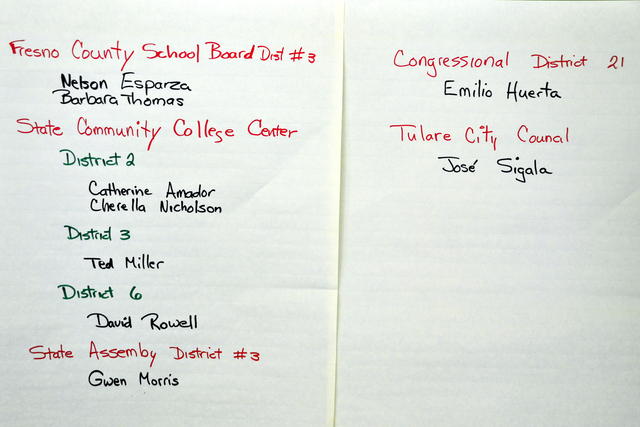 Fresno County School Board Dist #3
Nelson Esparza
Barbara Thomas
State Community College Center
District 2
Catherine Amador
Cherella Nicholson
District 3
Ted Miller
District 6
David Rowell
State Assemby District #3
Gwen Morris
Congressional District 21
Emilio Huerta
Tulare City Counal
José Sigala